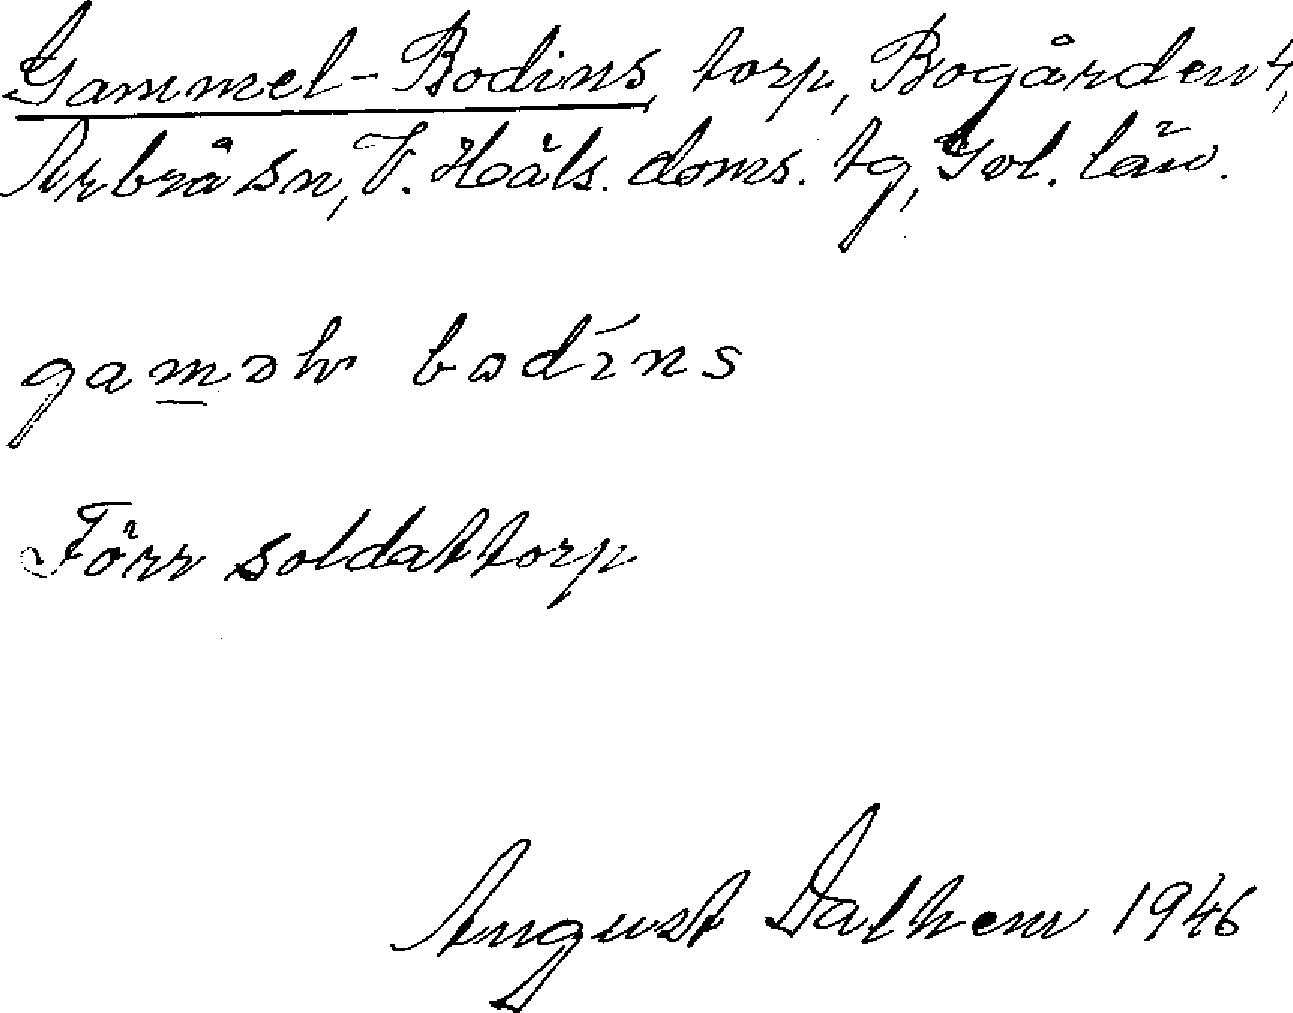 Gammel-Bodins, torp, Bogården 4,
Arbrå sn, V. Häls. doms. tg, Gvl. län.
gaməlw bodíns
Förr soldattorp
August Dalhem 1946